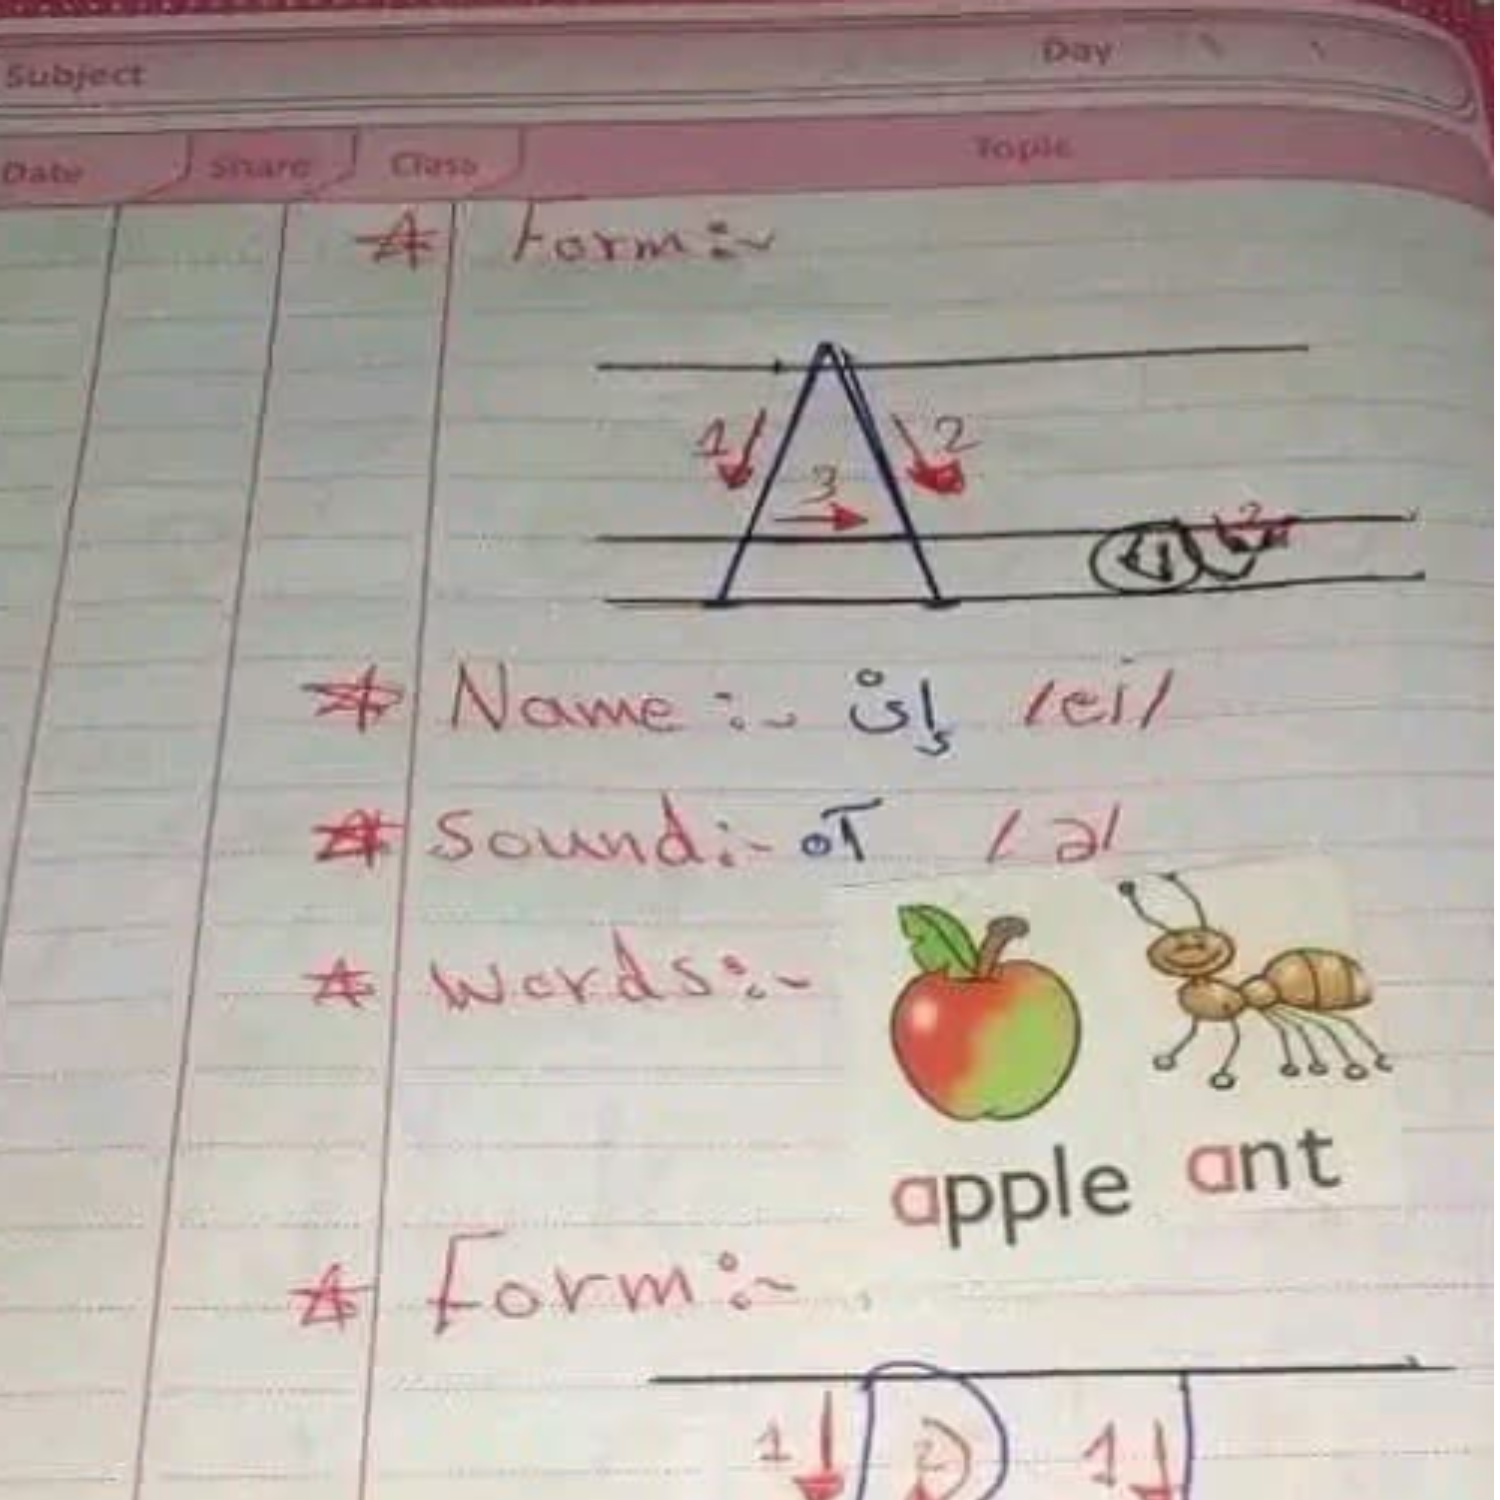 Subject Day
Date Share Class Topic
Form:~
1 2
3
2
Name :~ إىْ /ei/
Sound:~ آه /ə/
Words:~
apple ant
Form:~
1 2 1